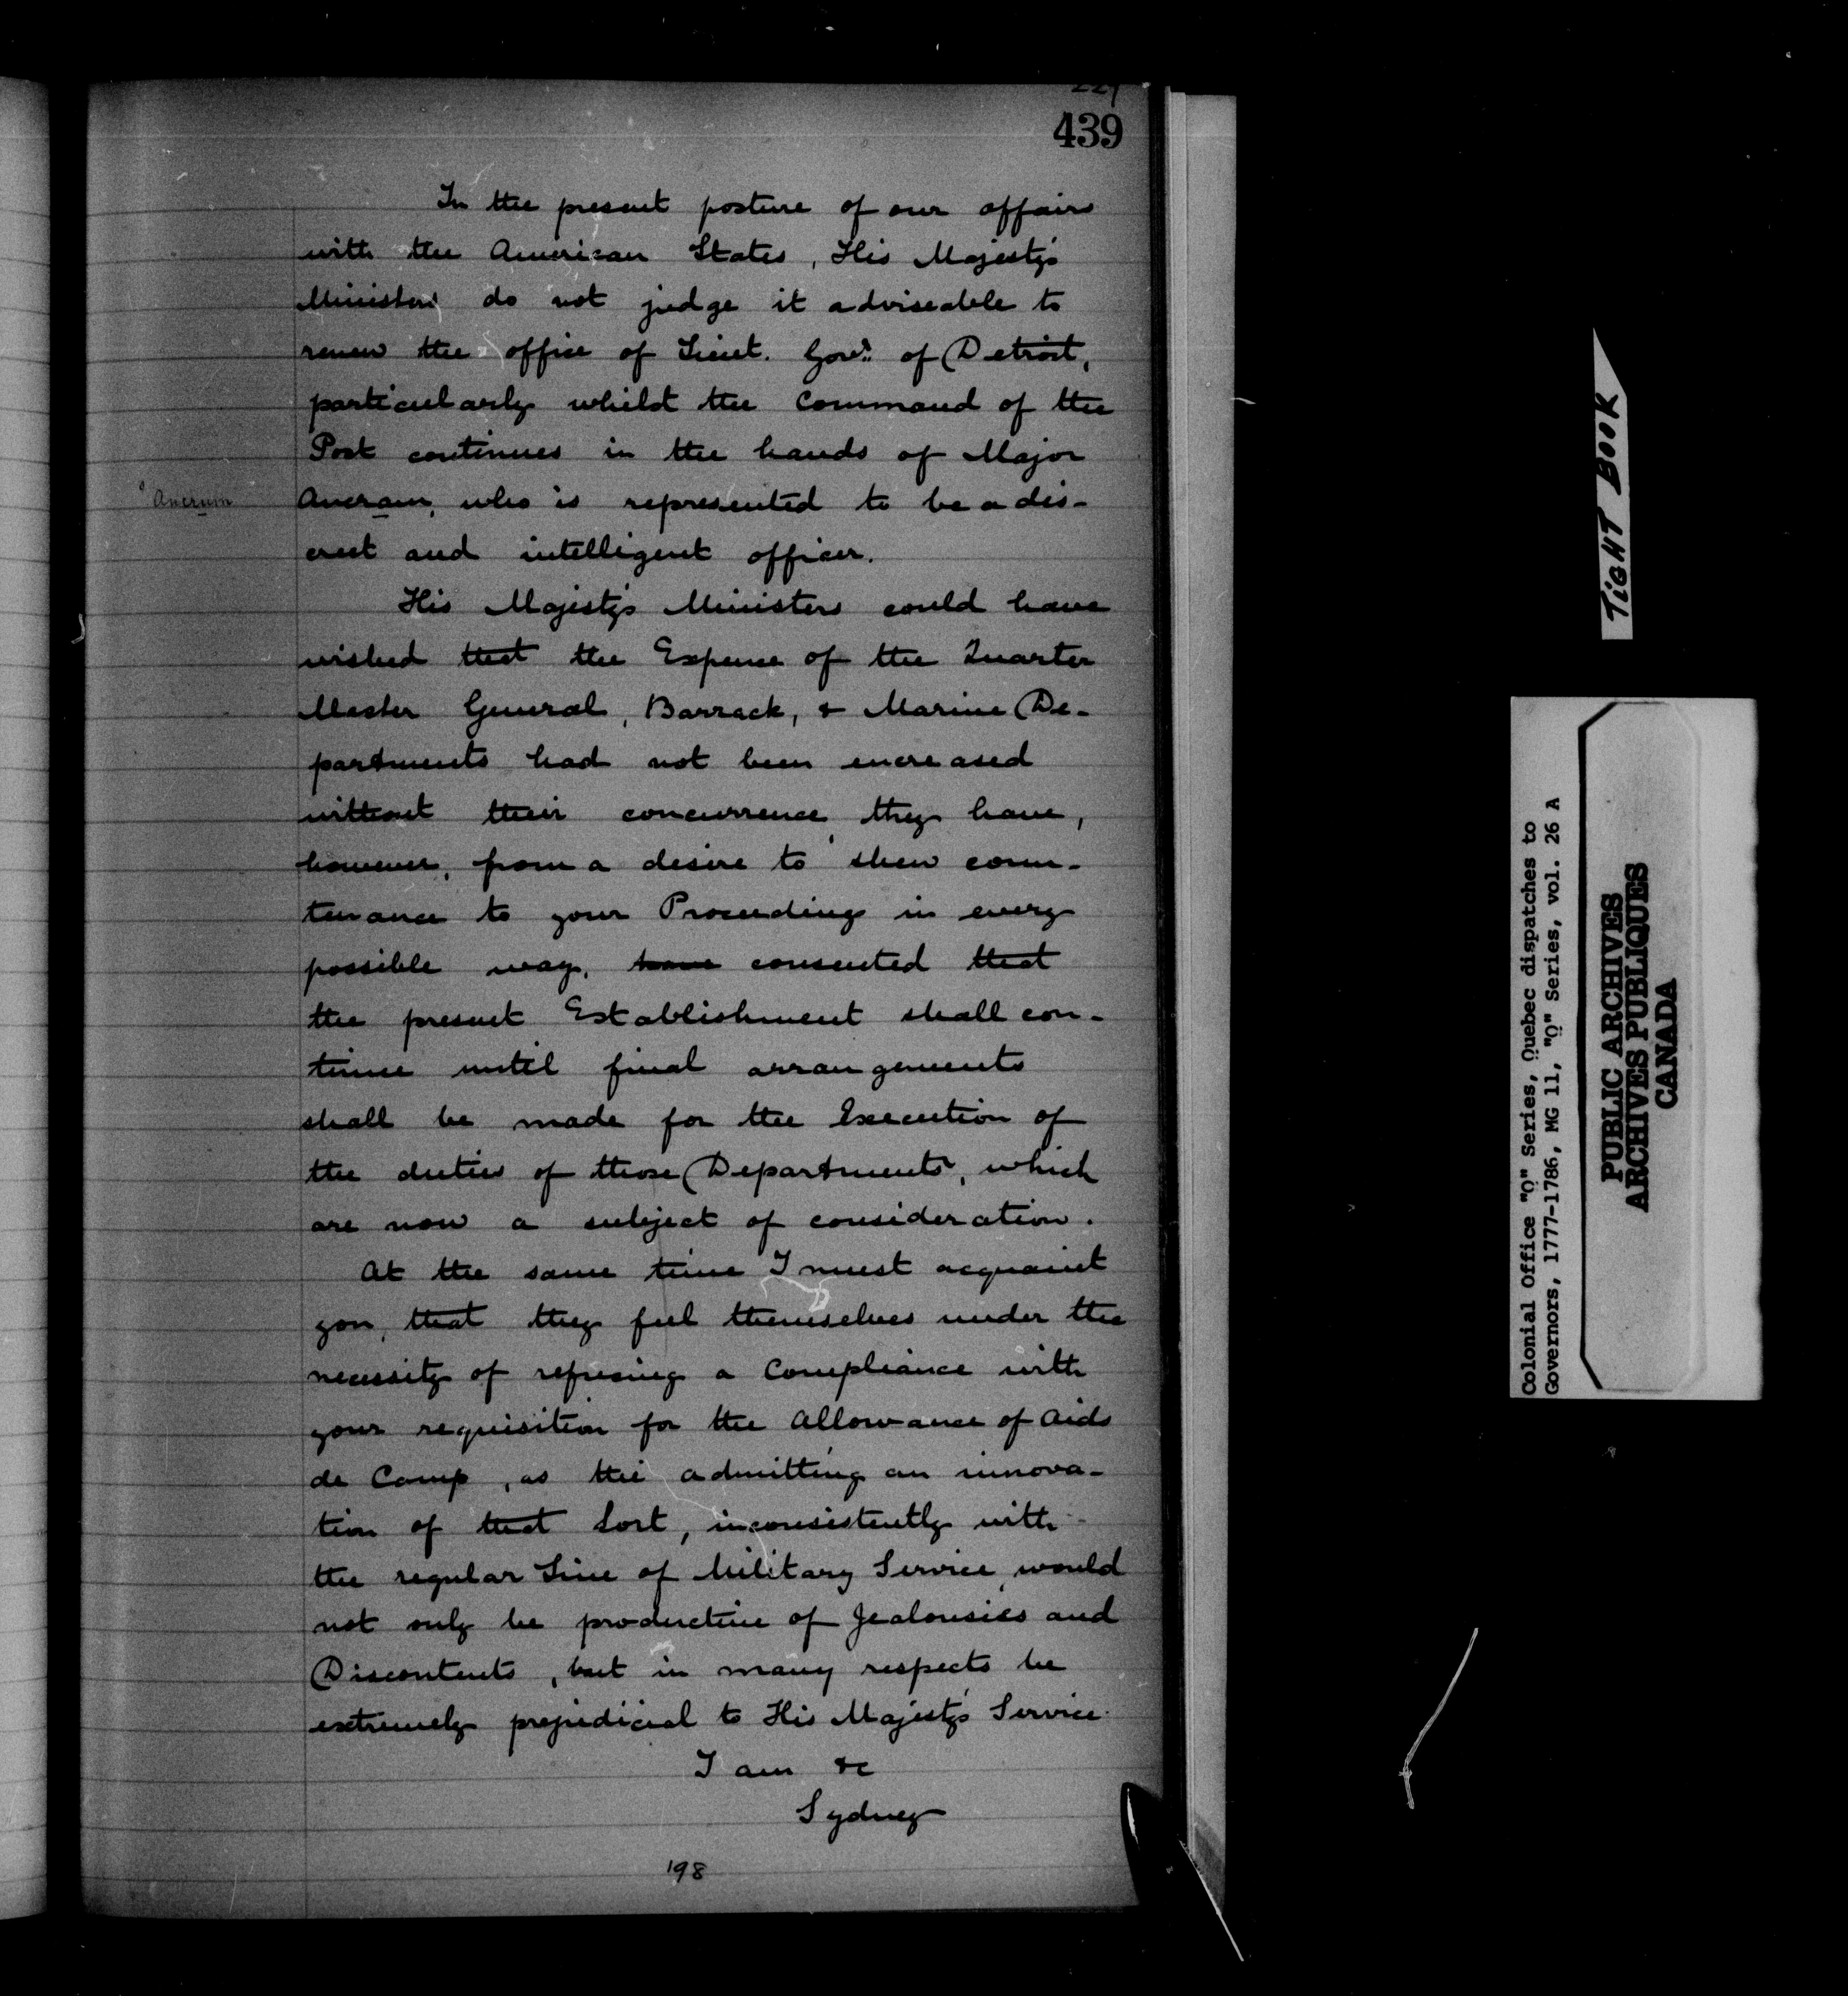 439
In the present posture of our affairs
with the American States, His Majesty's
Ministers do not judge it adviseable to
renew the office of Lieut. Govr. of Detroit,
particularly whilst the Command of the
Post continues in the hands of Major
Ancrum
Ancram, who is represented to be a dis-
creet and intelligent officer.
His Majesty's Ministers could have
wished that the Expence of the Quarter
Master General, Barrack, & Marine De-
partments had not been encreased
without their concurrence, they have,
however, from a desire to shew coun-
tenance to your Proceedings in every
possible way, have consented that
the present Establishment shall con-
tinue until final arrangements
shall be made for the Execution of
the duties of those Departments, which
are now a subject of consideration.
At the same time I must acquaint
you, that they feel themselves under the
necessity of refusing a Compliance with
your requisition for the Allowance of Aids
de Camp, as the admitting an innova-
tion of that Sort, inconsistently with
the regular Line of Military Service, would
not only be productive of Jealousies and
Discontents, but in many respects be
extremely prejudicial to His Majesty's Service.
I am &c
Sydney
198
TIGHT BOOK
Colonial Office "Q" Series, Quebec dispatches to
Governors, 1777-1786, MG 11, "Q" Series, vol. 26 A
PUBLIC ARCHIVES
ARCHIVES PUBLIQUES
CANADA